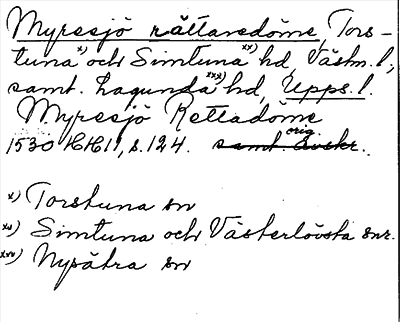 Myresjö rättaredöme, Tors-
tuna x) och Simtuna xx) hd, Västm. l;
samt. Lagunda xxx) hd, Upps. l.
Myresjö Rettadöme
1530 HH 11, s. 124. orig.
x) Torstuna sn
xx) Simtuna och Västerlövsta snr.
xxx) Nysätra sn